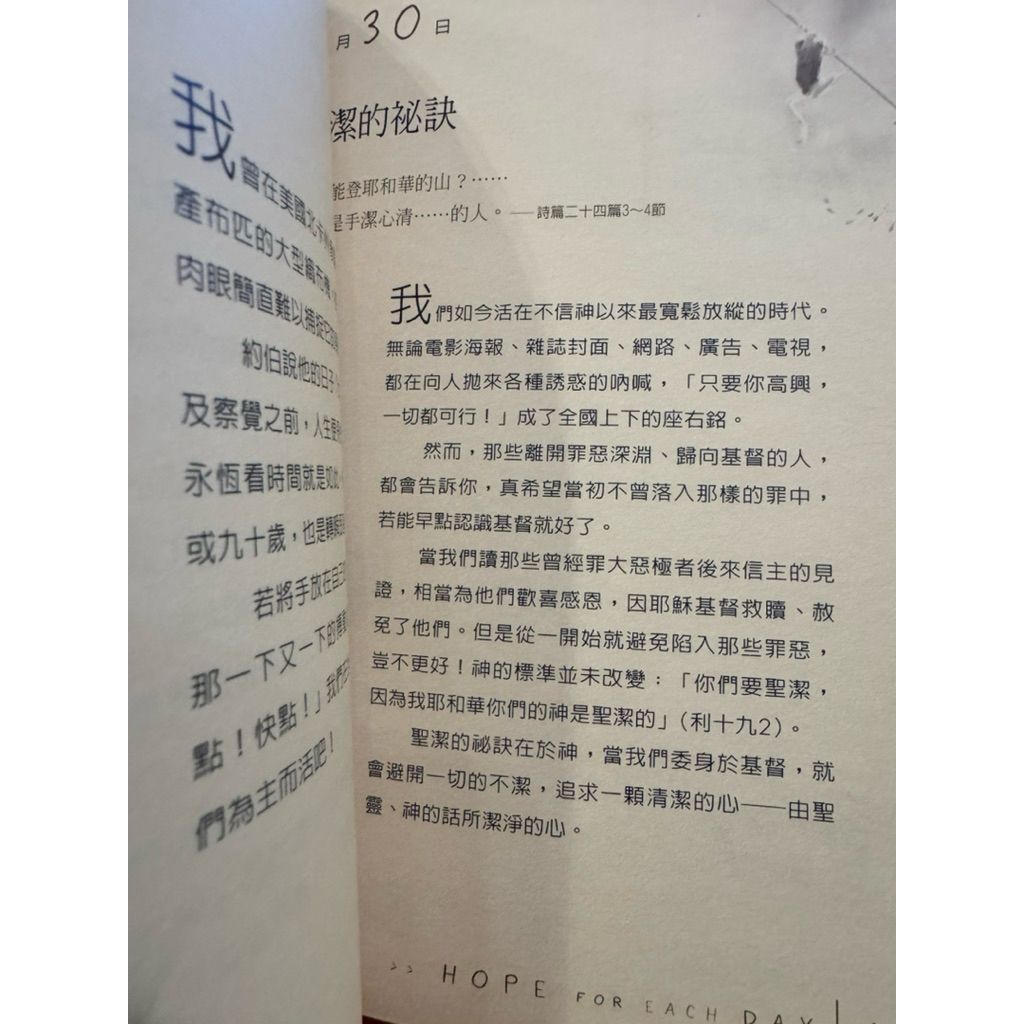 我曾在美國北卡
產布匹的大型織布機，
肉眼簡直難以捕捉它
約伯說他的日子
及察覺之前，人生便
永恆看時間就是如此，
或九十歲，也是轉瞬
若將手放在自己
那一下又一下的
點！快點！」我們
們為主而活吧！
月30日
潔的祕訣
能登耶和華的山？……
是手潔心清……的人。——詩篇二十四篇3～4節
我們如今活在不信神以來最寬鬆放縱的時代。
無論電影海報、雜誌封面、網路、廣告、電視，
都在向人拋來各種誘惑的吶喊，「只要你高興，
一切都可行！」成了全國上下的座右銘。
然而，那些離開罪惡深淵、歸向基督的人，
都會告訴你，真希望當初不曾落入那樣的罪中，
若能早點認識基督就好了。
當我們讀那些曾經罪大惡極者後來信主的見
證，相當為他們歡喜感恩，因耶穌基督救贖、赦
免了他們。但是從一開始就避免陷入那些罪惡，
豈不更好！神的標準並未改變：「你們要聖潔，
因為我耶和華你們的神是聖潔的」（利十九2）。
聖潔的祕訣在於神，當我們委身於基督，就
會避開一切的不潔，追求一顆清潔的心——由聖
靈、神的話所潔淨的心。
>> HOPE FOR EACH DAY